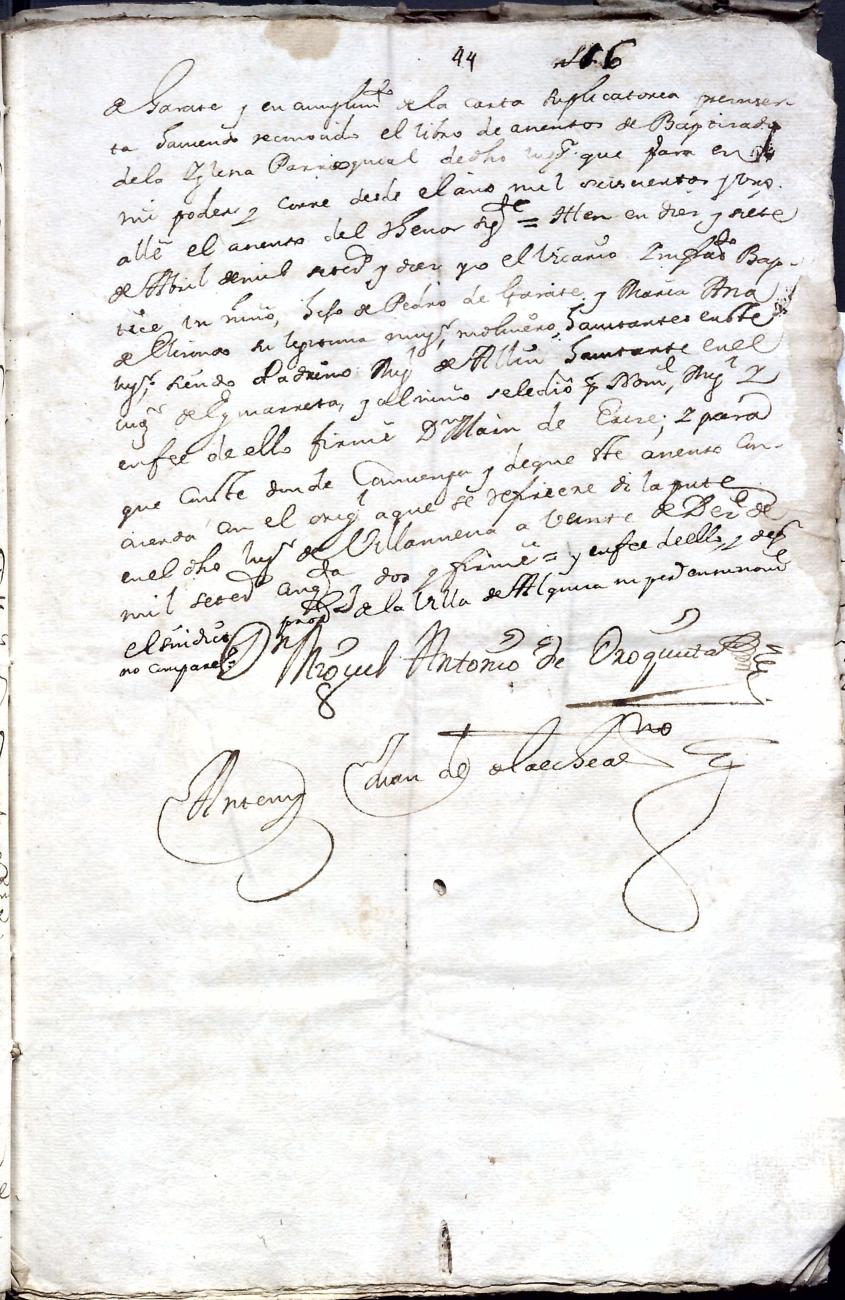 44 116
de Garate y en cumplim.to de la carta suplicatoria preinser-
ta haviendo reconocido el libro de asientos de Baptizados
de la Iglesia Parroquial de dho lug.r que para en
mi poder, y corre desde el año mil seiscientos y uno.
allé el asiento del thenor sig.te = Item en diez y siete
de Abril de mil setez.s y diez yo el Vicario Bap-
tice un niño, hijo de Pedro de Garate, y Maria Ana
de su legitima muger, molinero, havitantes en este
lug.r, siendo Padrino Mig.l de havitante en el
lug.r de Eguiarreta, y al niño se le dió p.r Nom.e Mig.l y
en fee de ello firmé D.n de y para
que conste donde Convenga y de que este asiento con-
cuerda con el orig.l a que se refiere di la pnte
en el dho lug.r de Villanueva a veinte de de
mil setez.s cinq.ta y dos y firmé = y en fee de ello, y de q.e
el sindico proc.or de la Villa de
no comparec.o
Miguel Antonio de Oroquieta
Antemi Juan de Olaechea no